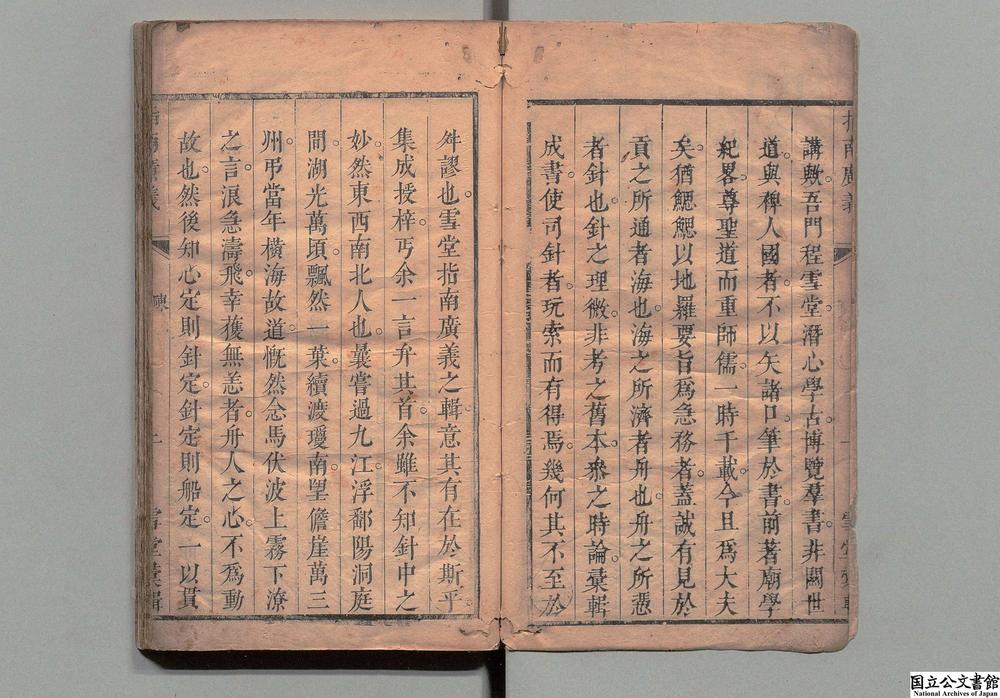 指南廣義
講歟吾門程雪堂潛心學古博覽羣書非關世
道與稗人國者不以矢諸口筆於書前著廟學
紀畧尊聖道而重師儒一時千載今且爲大夫
矣猶鰓鰓以地羅要旨爲急務者蓋誠有見於
貢之所通者海也海之所濟者舟也舟之所憑
者針也針之理微非考之舊本叅之時論彙輯
成書使司針者玩索而有得焉幾何其不至於
舛謬也雪堂指南廣義之輯意其有在於斯乎
集成授梓丐余一言弁其首余雖不知針中之
妙然東西南北人也曩嘗過九江浮鄱陽洞庭
間湖光萬頃飄然一葉續渡瓊南望儋崖萬三
州弔當年橫海故道慨然念馬伏波上霧下潦
之言浪急濤飛幸獲無恙者舟人之心不爲動
故也然後知心定則針定針定則船定一以貫
指南廣義 陳 雪堂彙輯
国立公文書館
National Archives of Japan